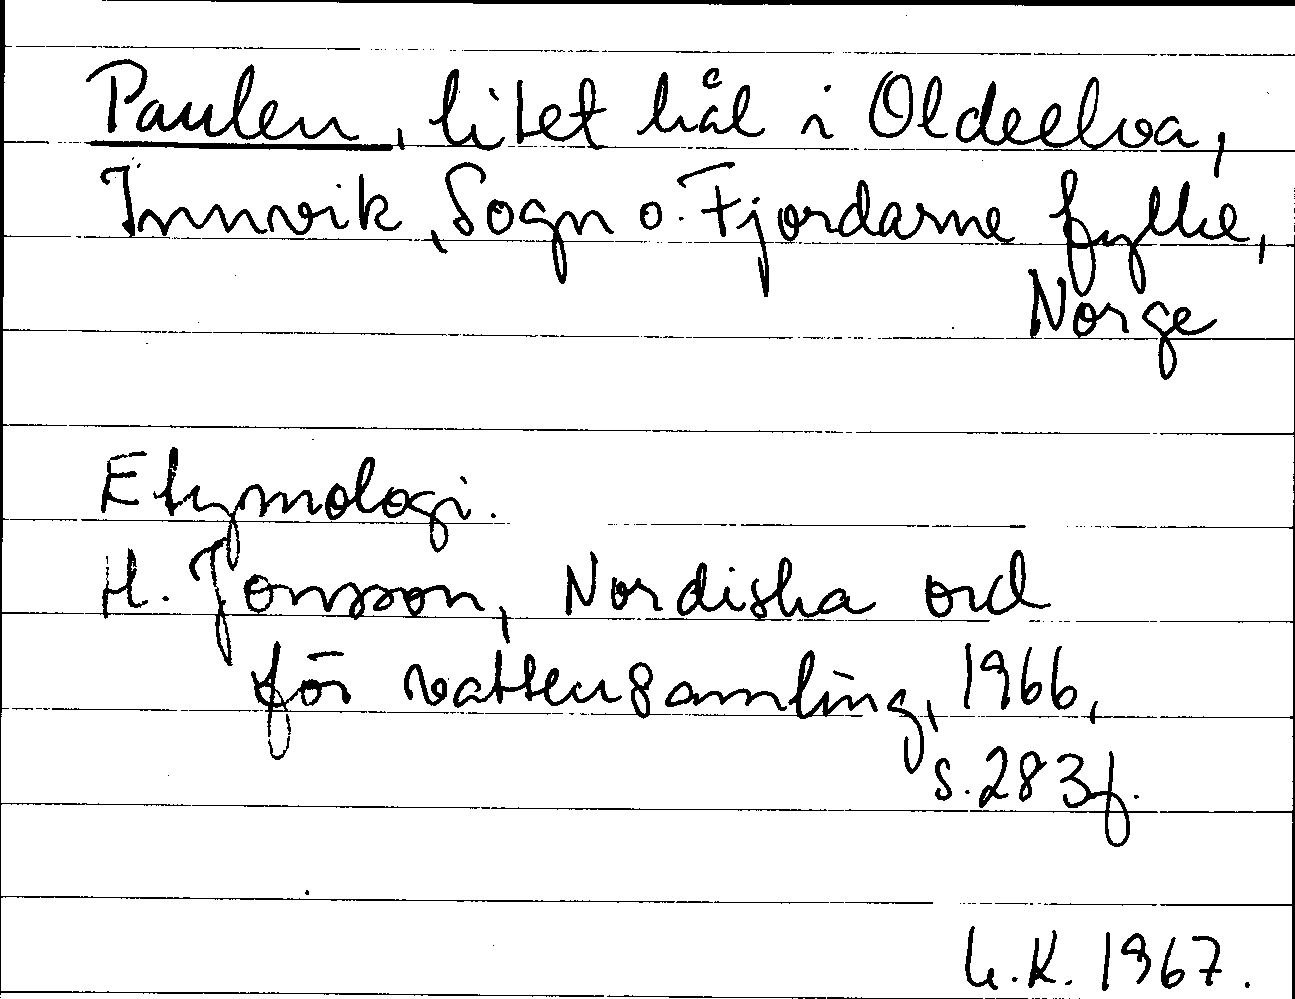 Paulen, litet hål i Oldeelva,
Innvik, Sogn o. Fjordarne fylke,
Norge
Etymologi.
H. Jonsson, Nordiska ord
för vattensamling, 1966,
s. 283f.
L.K. 1967.